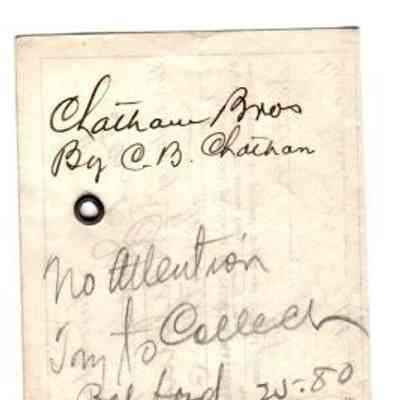 Chatham Bros
By C.B. Chatham
No Attention
Try to Collect
Bal Ford 25.80